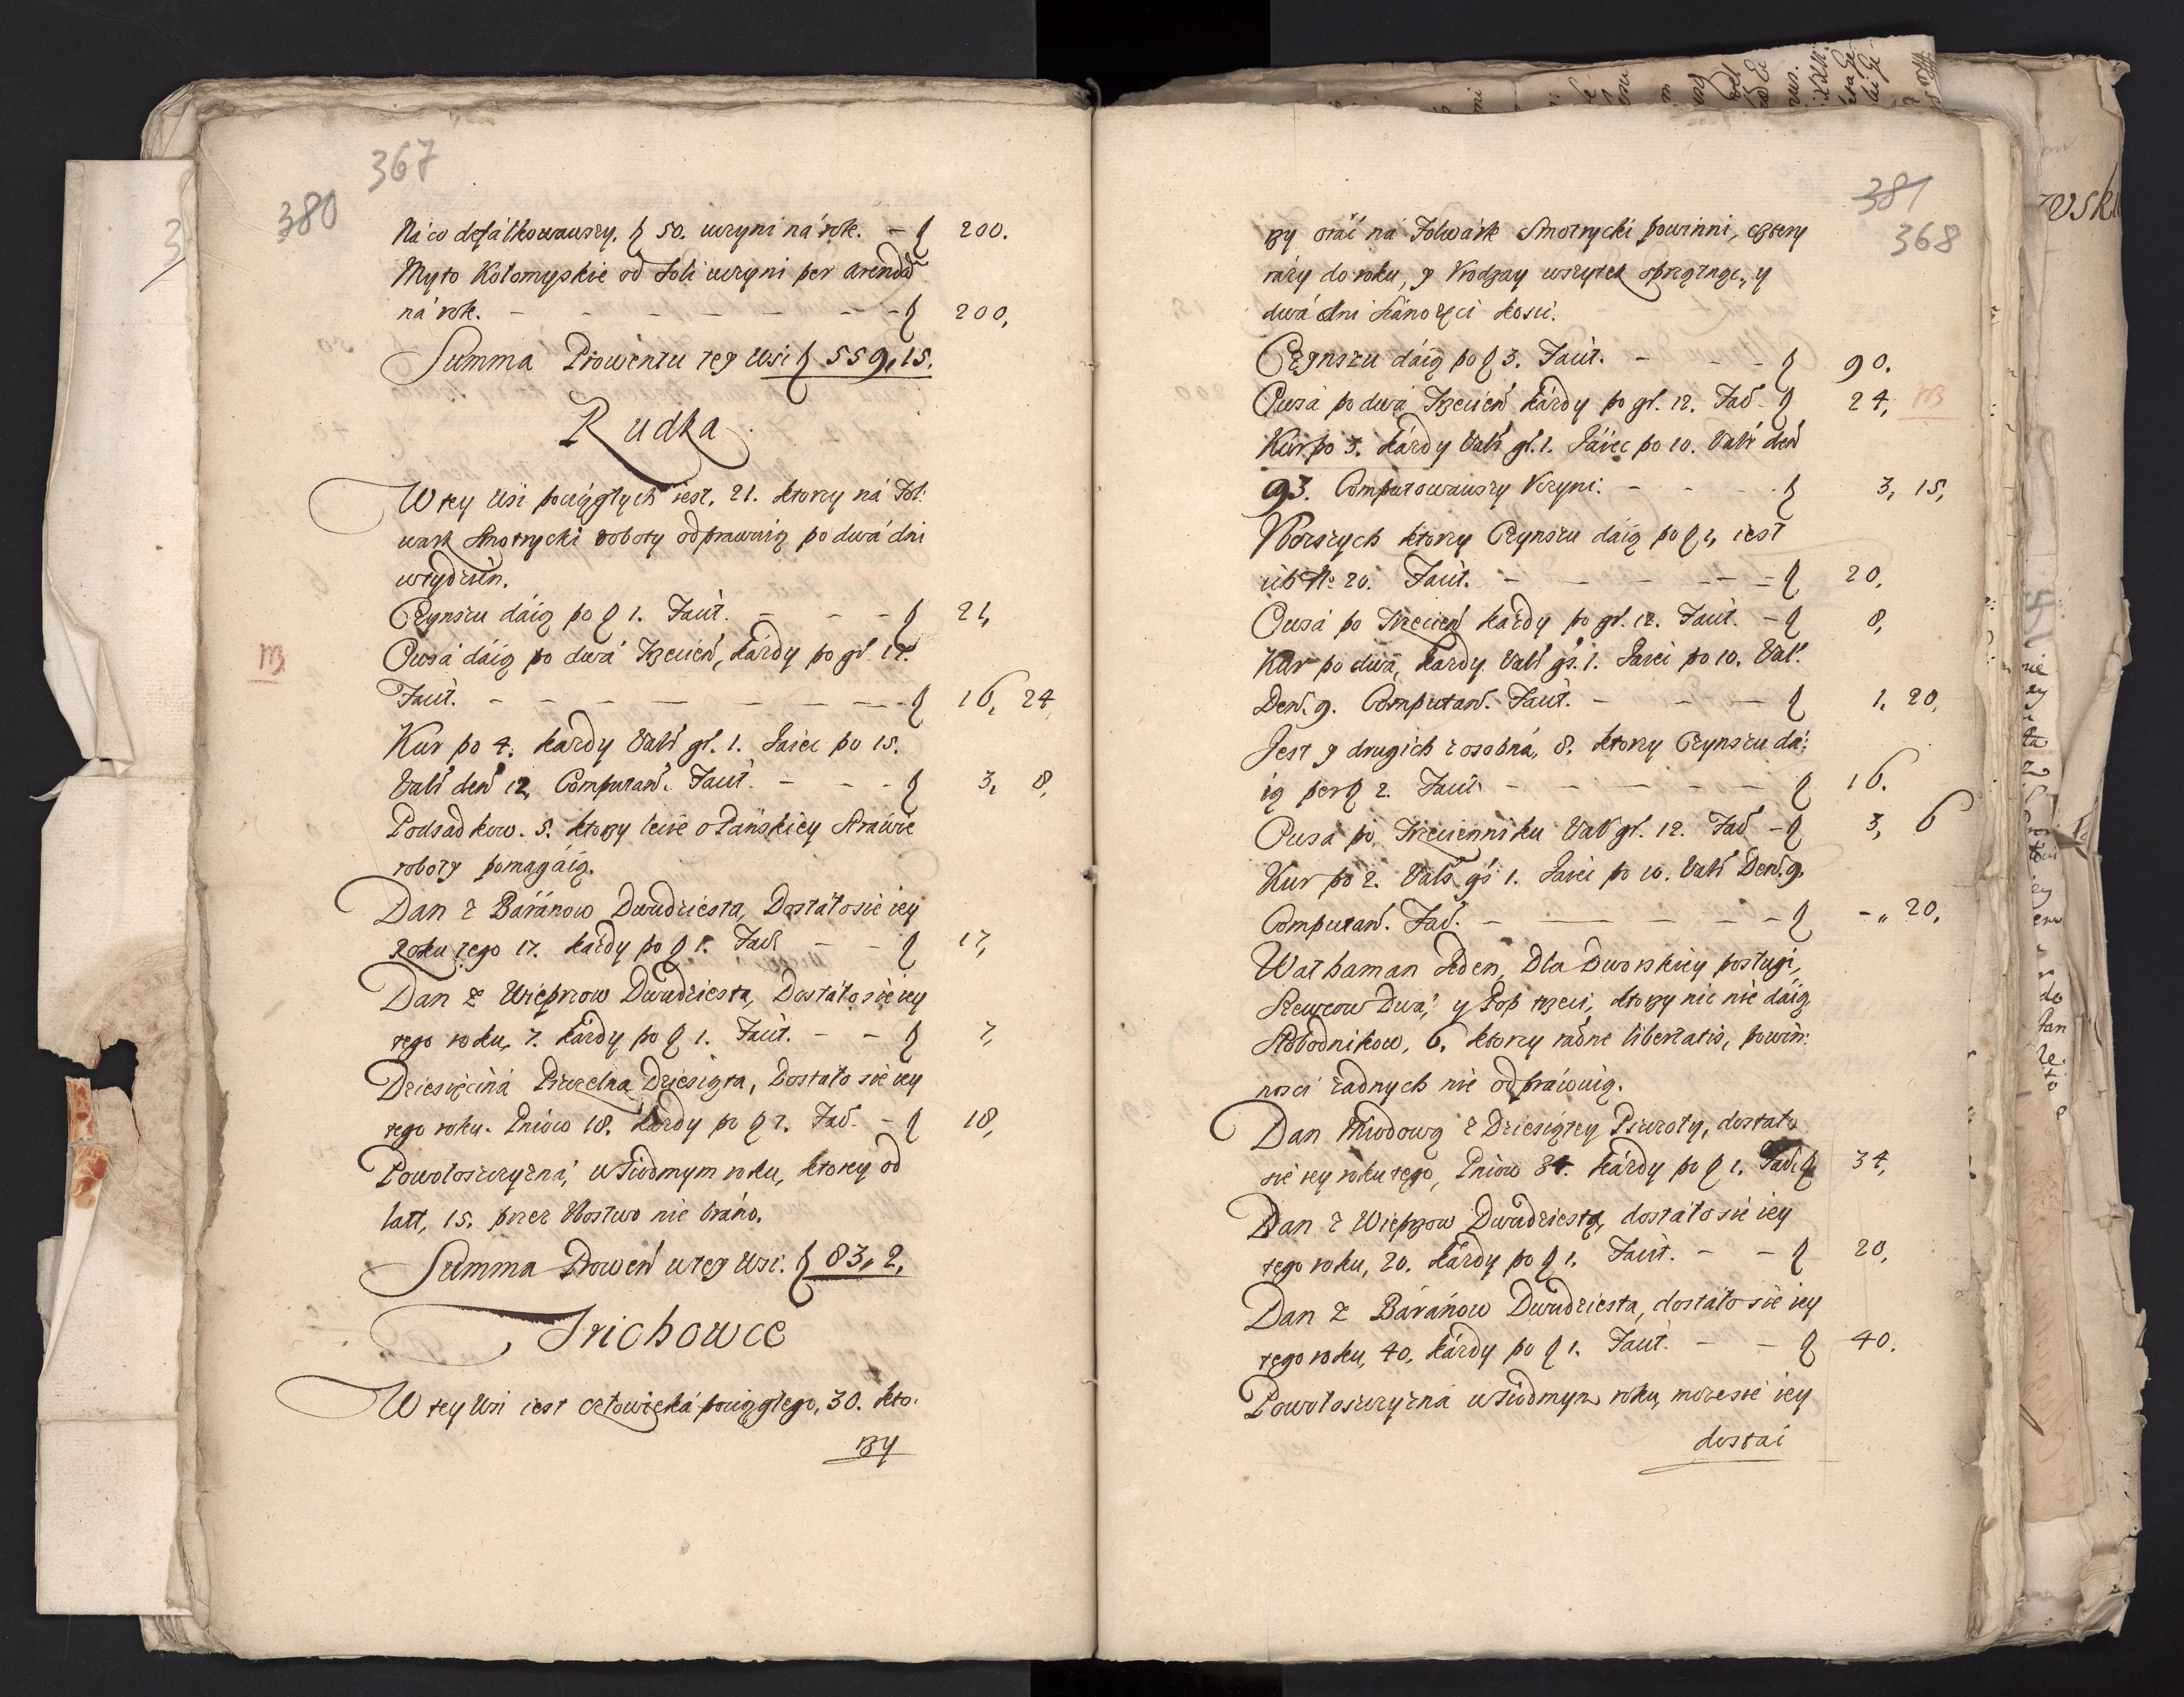 367
380
Ná co defálkowawszy. f 50. uczyni ná rok. – f 200.
Myto Kołomyyskie od Soli uczyni per Arendā
ná rok. – – – – – – – f 200,
Summa Prowentu tey Wsi f 559,15.
Rudka
W tey Wsi pociągłych iest, 21. ktorzy ná Fol:
wark Smotrycki roboty odprawuią po dwá dni
w tydzień.
Czynszu dáią po f 1. Facit. – – – f 21,
Owsá dáią po dwá Trzecień, káżdy po gr. 12.
Facit. – – – – – – – f 16, 24
Kur po 4. każdy Val: gr. 1. Jáiec po 15.
Val: den 12, Computań. Facit. – – – f 3, 8,
Podsadkow. 5. ktorzy lecie o Páńskiey Strawie
roboty pomagáią.
Dan z Báránow Dwudziesta, Dostáło sie iey
Roku tego 17. káżdy po f 1. Fac. – – f 17,
Dan z Wieprzow Dwudziesta, Dostáło sie iey
tego roku, 7. káżdy po f 1. Facit. – – f 7,
Dziesięciná Pszczelna Dziesiąta, Dostało sie iey
tego roku. Pniow 18. káżdy po f 1. Fac. – f 18,
Powołoszczyzná, w Siodmym roku, ktorey od
latt, 15. przez Ubostwo nie bráno.
Summa Prowen w tey Wsi. f 83, 2,
Jrichowce
W tey Wsi iest człowieká pociągłego, 30. kto:
rzy
381
368
rzy oráć ná Folwárk Smotrycki powinni, cztery
rázy do roku, y Vrodzay wszytek sprzątnąć, y
dwá dni Siánożęci kosić.
Czynszu dáią po f 3. Facit. – – – f 90.
Owsá po dwá Trzecień káżdy po gr. 12. Fac. f 24,
Kur po 3. káżdy Val: gr. 1. Jáiec po 10. Val: den
93. Computowawszy Vczyni. – – – f 3, 15,
Vboższych ktorzy Czynszu dáią po f 1, iest
ich No 20. Facit. – – – – – f 20,
Owsá po Trzecień káżdy po gr. 12. Facit. – f 8,
Kur po dwá, káżdy Val: gr. 1. Jaiec po 10. Val:
Den. 9. Computan. Facit. – – – f 1, 20,
Jest y drugich z osobná, 8. ktorzy Czynszu dá:
ią per f 2. Facit – – – – – f 16.
Owsá po Trzecienniku Val: gr. 12. Fac – f 3, 6
Kur po 2. Val: gr 1. Jáiec po 10. Val: Den. 9.
Computan. Fac. – – – – – f –,, 20,
Wathaman Jeden, Dla Dworskiey posługi,
Szewcow Dwá, y Pop trzeci, ktorzy nic nie dáią,
Słobodnikow, 6. ktorzy ratione libertatis, powin:
nosci żadnych nie odpráwuią.
Dan Miodową z Dziesiątey Pszczoły, dostáło
sie iey roku tego, Pniow 34. káżdy po f 1. Fac. f 34,
Dan z Wieprzow Dwudziesta, dostáło sie iey
tego roku, 20. káżdy po f 1. Facit. – – f 20,
Dan z Báránow Dwudziesta, dostáło sie iey
tego roku, 40. káżdy po f 1. Facit. – – f 40.
Powołoszczyzná w Siodmym roku, może sie iey
dostái